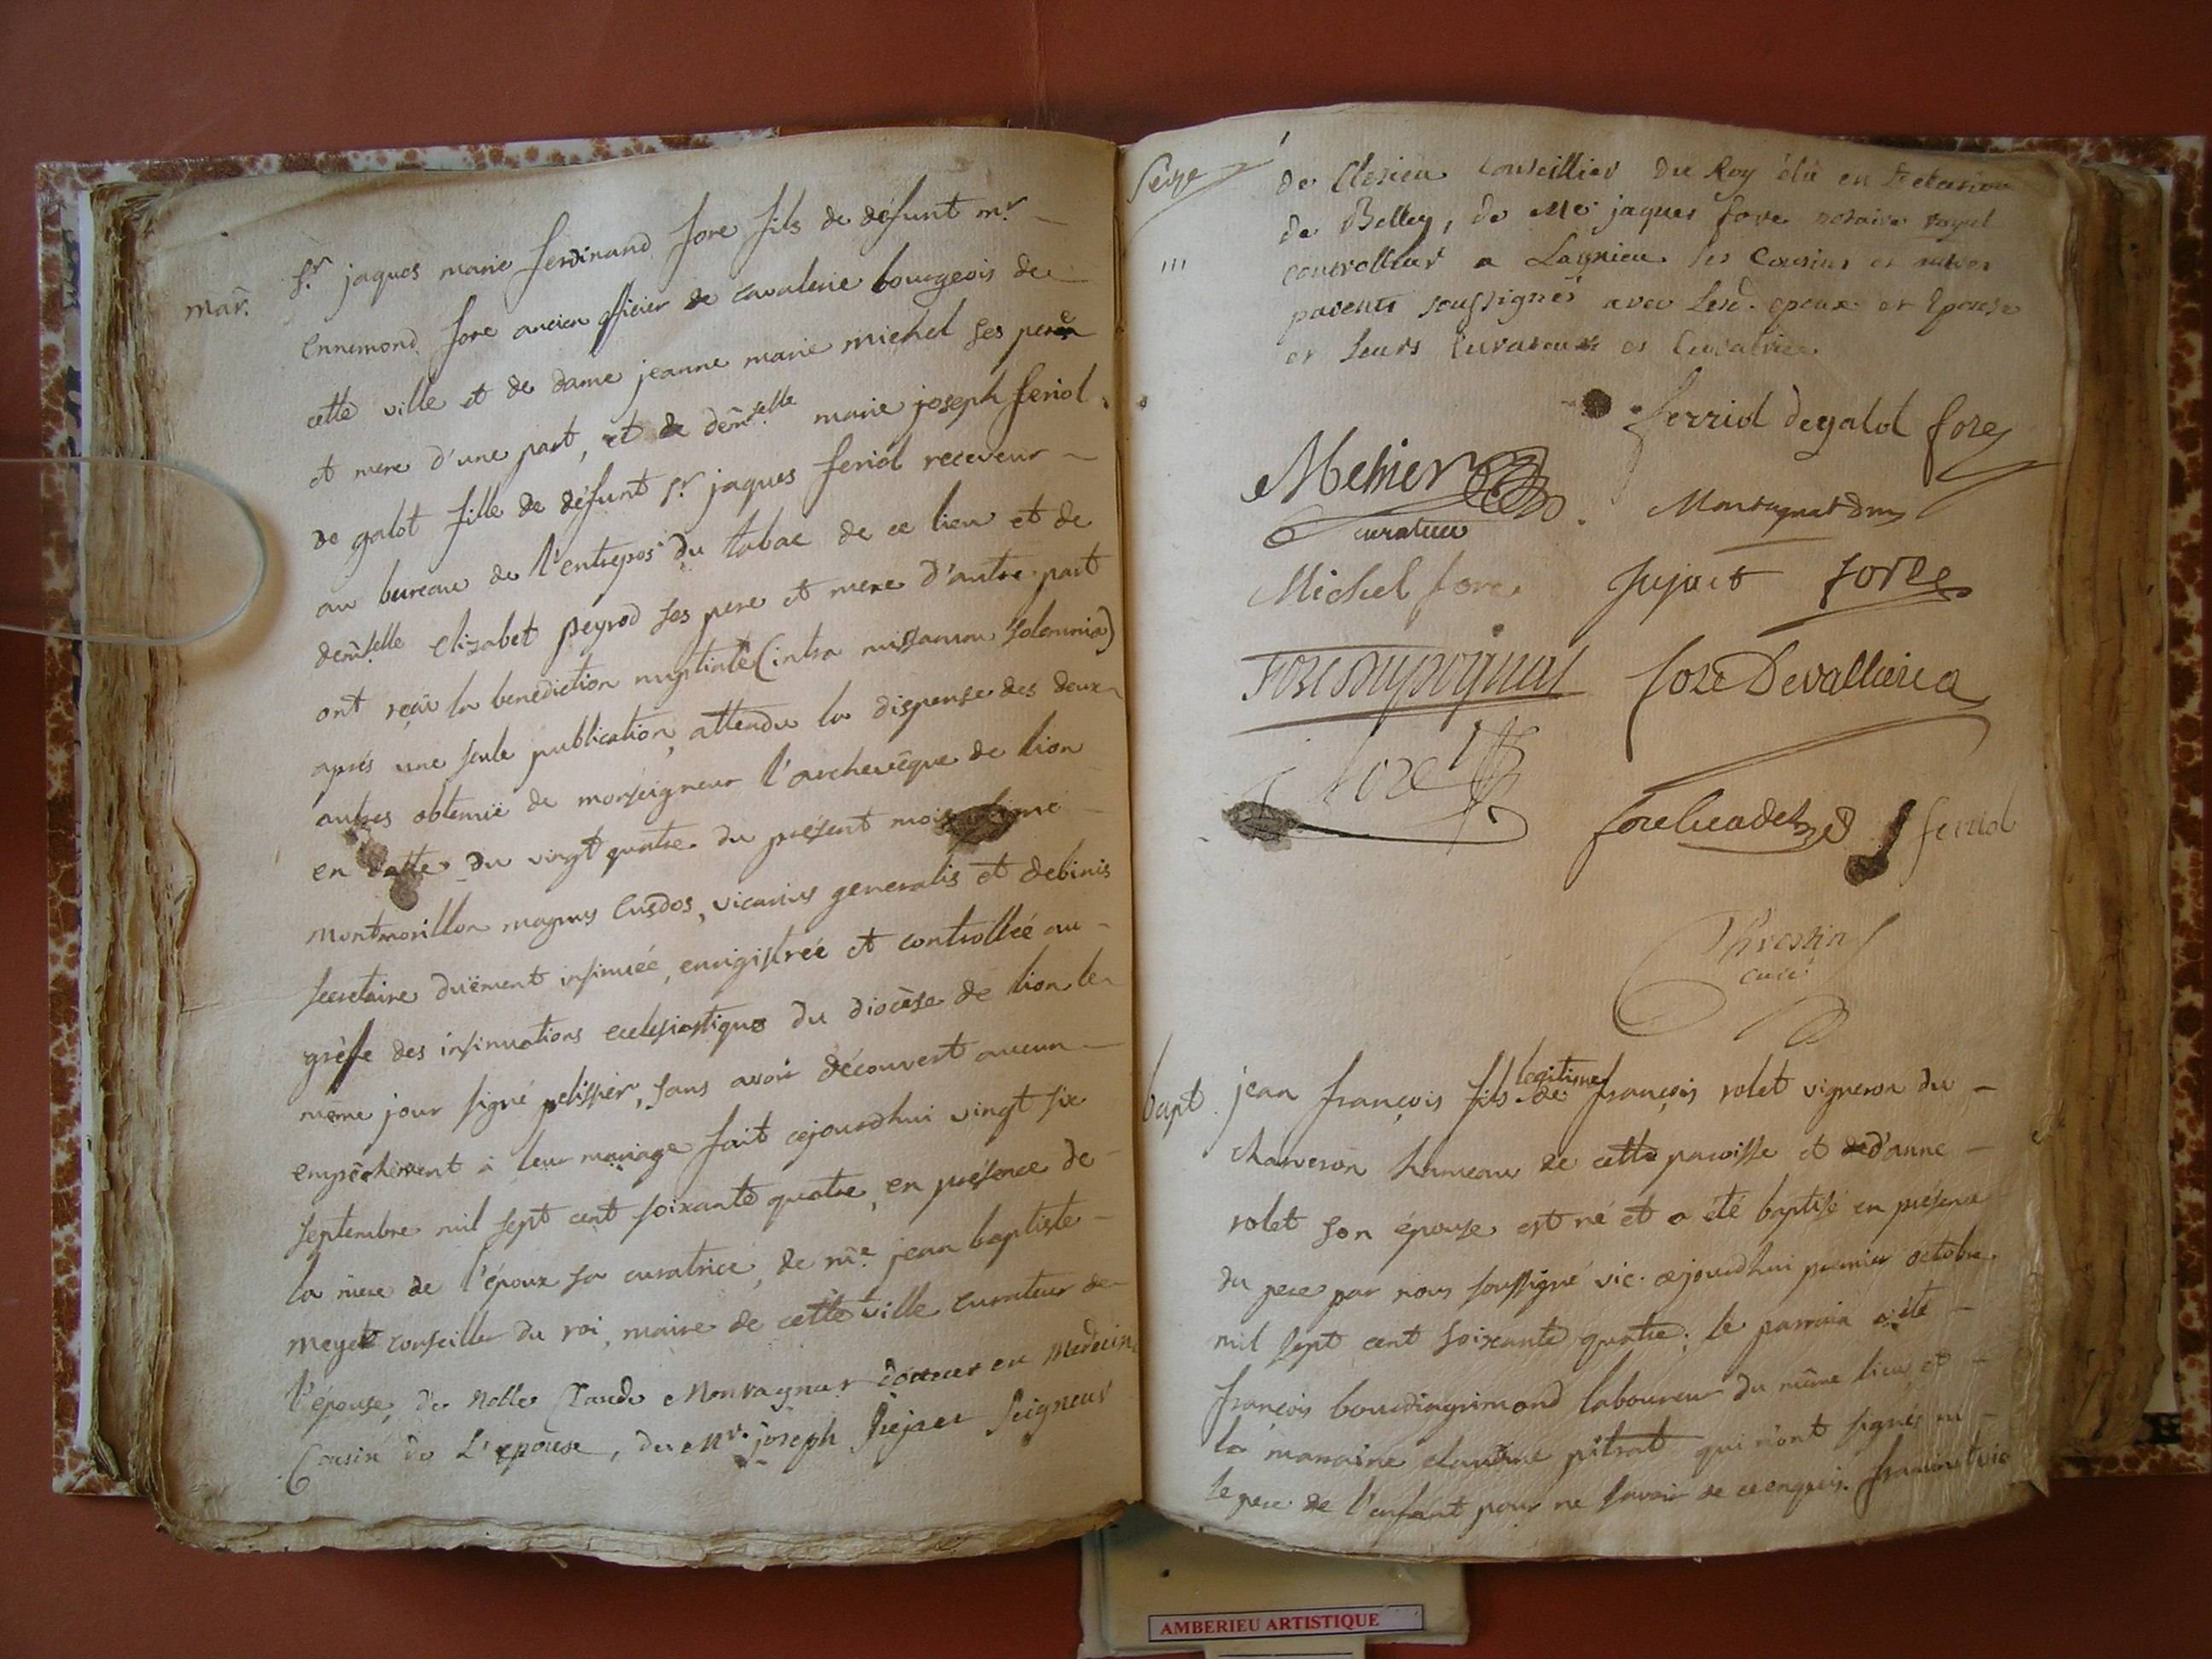 mar.
Sr. jaques marie ferdinand fore fils de défunt mr.
Ennemond fore ancien officier de cavalerie bourgeois de
cette ville et de dame jeanne marie michel ses pere
et mere d'une part, et de demselle marie joseph feriol
de galot fille de défunt Sr. jaques feriol receveur
au bureau de l'entrepos du tabac de ce lieu et de
demselle elizabet peyrod ses pere et mere d'autre part
ont reçû la benediction nuptiale (intra missarum solemnia)
après une seule publication, attendu la dispense des deux
autres obtenüe de monseigneur l'archevêque de lion
en datte du vingt quatre du présent mois signé
montmorillon magnus Cusdos, vicarius generalis et debinis
secretaire duëment insinuée, enrigistrée et controllée au
grèfe des insinuations ecclesiastiques du diocèse de lion le
même jour signé pelissier, sans avoir découvert aucun
empêchement à leur mariage fait cejourdhui vingt six
septembre mil sept cent soixante quatre, en présence de
la mere de l'époux sa curatrice, de me. jean baptiste
conseiller du roi, maire de cette ville curateur de
l'épouse, de Noble Claude Montagnat docteur en Medecine
Cousin de L'epouse, de Mr. joseph Seigneur
Seize
de Clesieu Conseillier du Roy élû en L'election
de Belley, de Me jaques fore notaire royal
controlleur a Lagnieu ses Cousins et autres
parents soussignés avec Lesd. epoux et Epouse
et leurs Curateur et Curatrice
ferriol degalol fore
Curateur
Montagnat dm
Michel fore Jujat fore
fore Devalliere
fore
feriol
curé
bapt. jean françois fils legitime de françois rolet vigneron du
hameau de cette paroisse et d'anne
rolet son épouse est né et a été baptisé en présence
du pere par nous soussigné vic. cejourdhui premier octobre
mil sept cent soixante quatre; le parrain a été
françois laboureur du même lieu et
la marraine claudine pitrat qui n'ont signés ni
le pere de l'enfant pour ne savoir de ce enquis. vic
AMBERIEU ARTISTIQUE